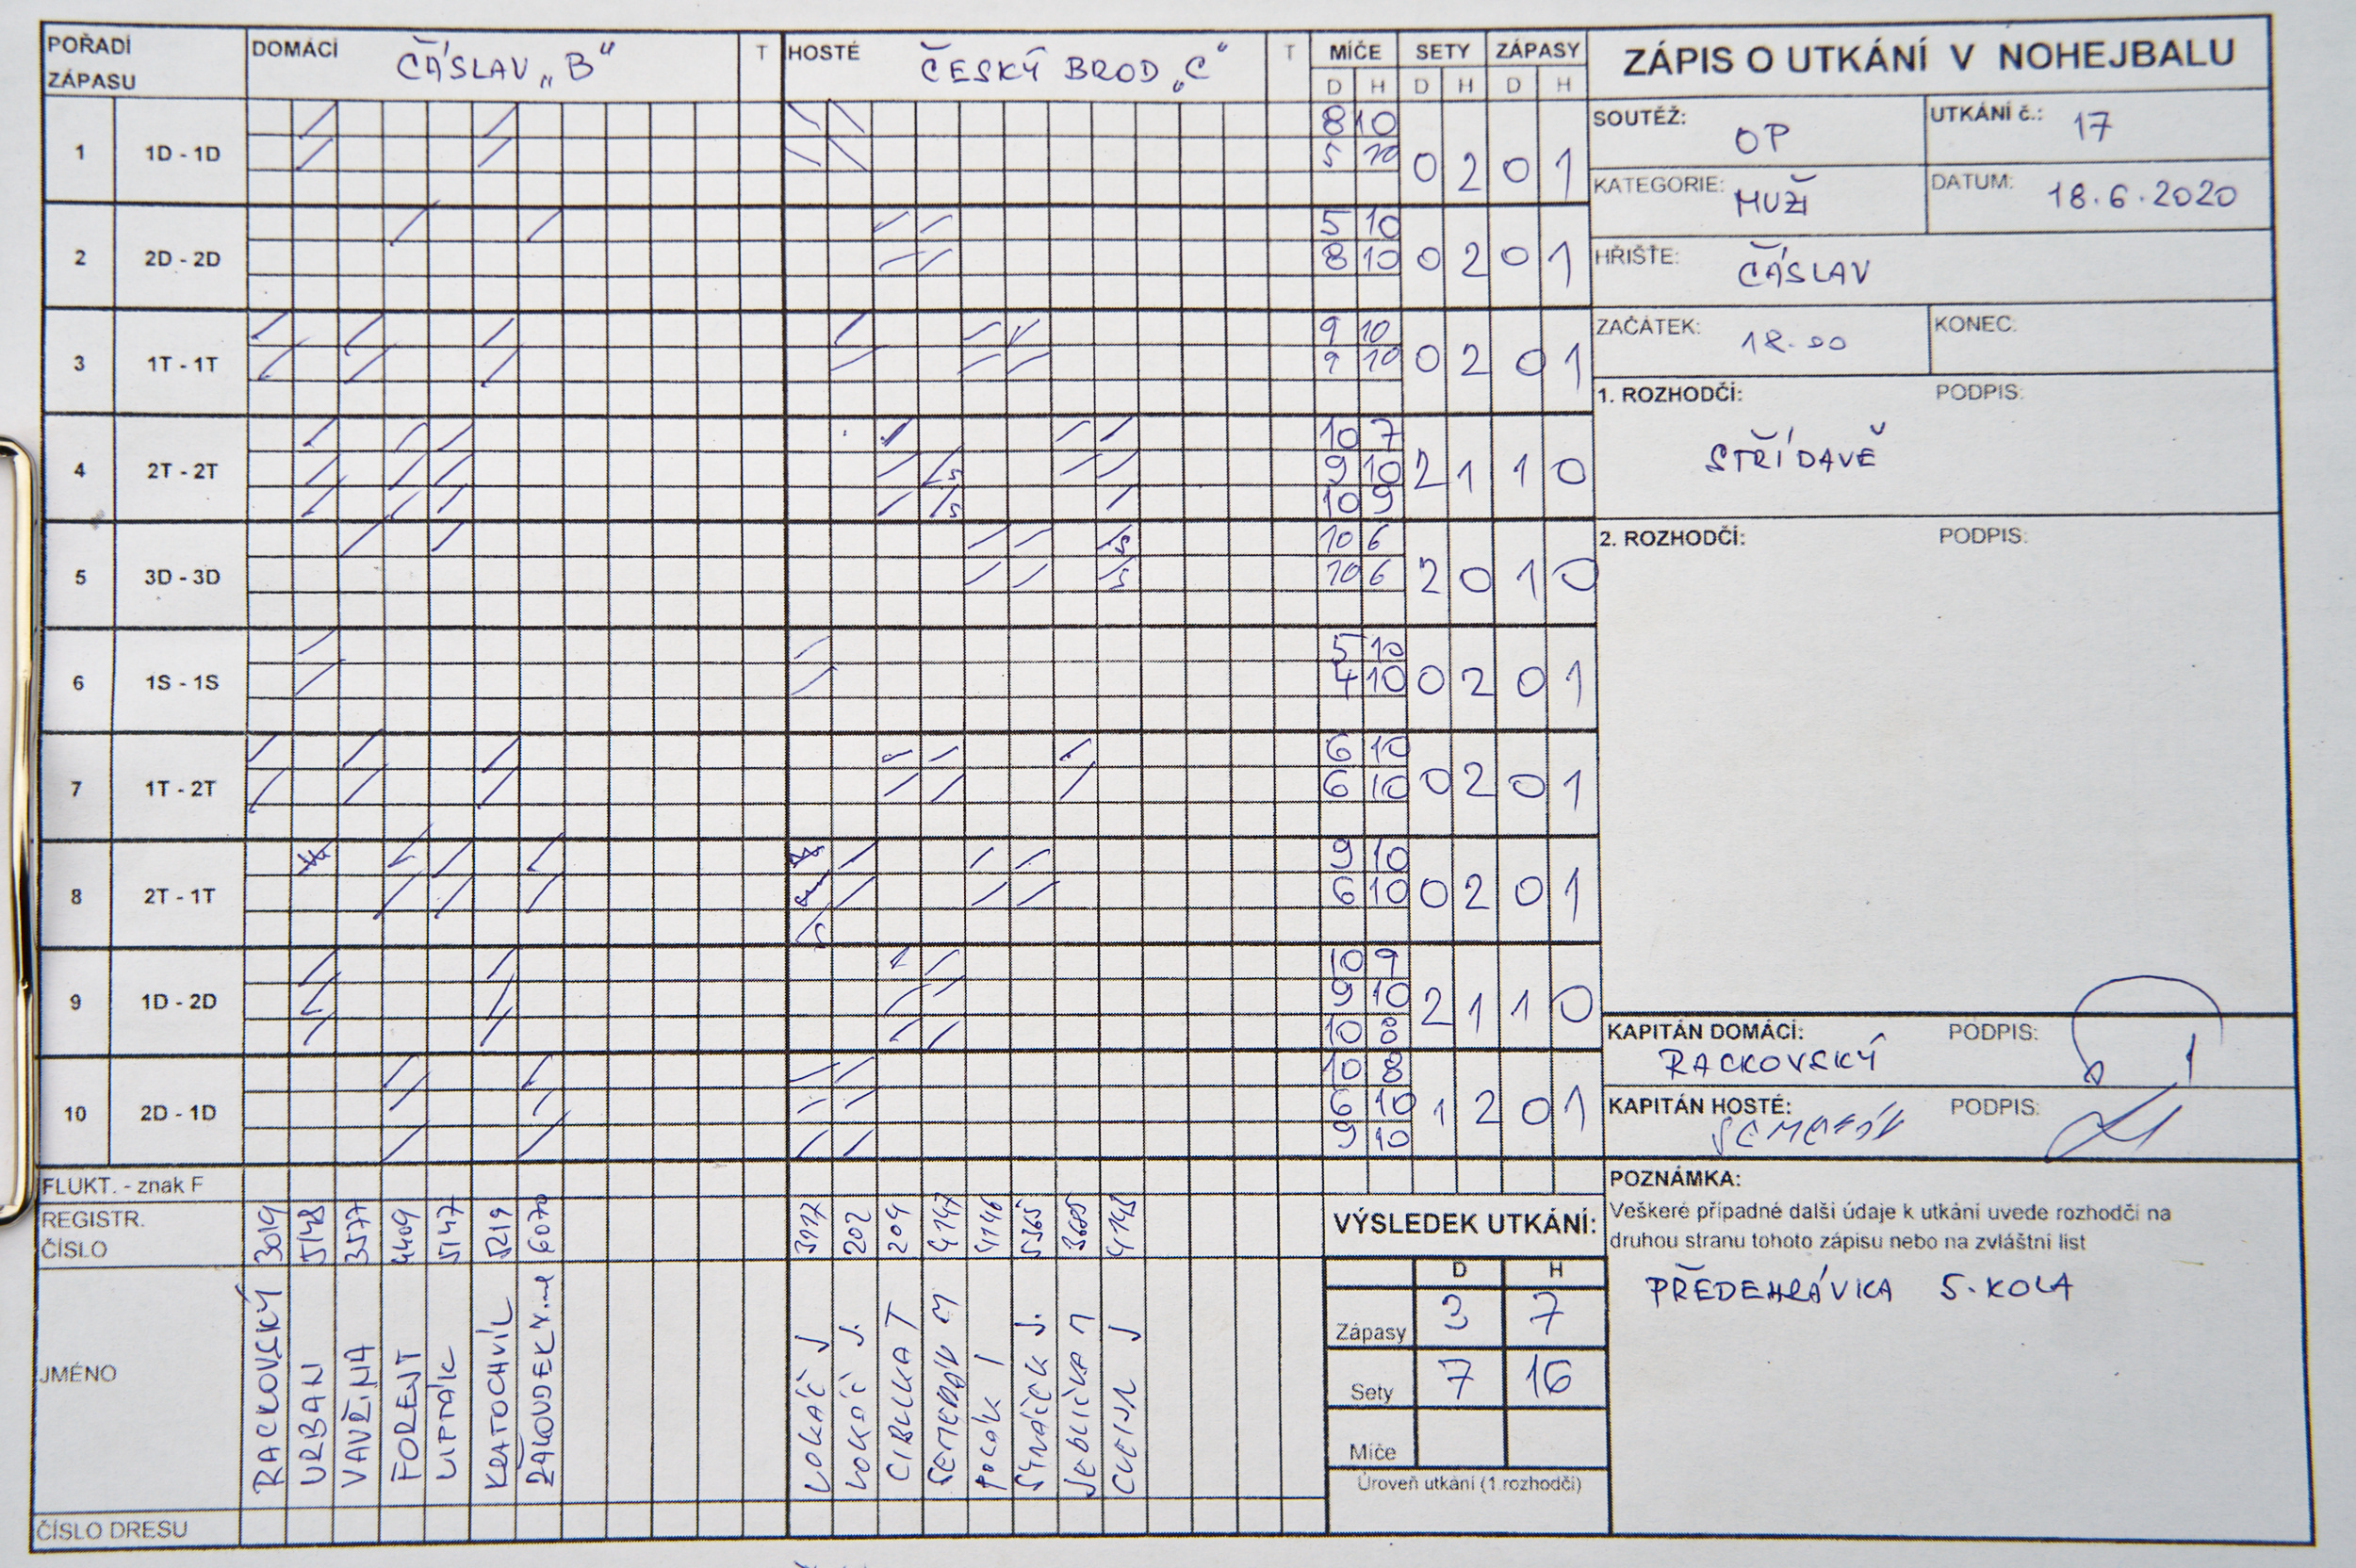 POŘADÍ ZÁPASU DOMÁCÍ ČÁSLAV „B“ T HOSTÉ ČESKÝ BROD „C“ T MÍČE SETY ZÁPASY
D H D H D H
ZÁPIS O UTKÁNÍ V NOHEJBALU
1 1D - 1D 8 10 0 2 0 1
5 10
2 2D - 2D 5 10 0 2 0 1
8 10
3 1T - 1T 9 10 0 2 0 1
9 10
4 2T - 2T 10 7 2 1 1 0
9 10
10 9
5 3D - 3D 10 6 2 0 1 0
10 6
6 1S - 1S 5 10 0 2 0 1
4 10
7 1T - 2T 6 10 0 2 0 1
6 10
8 2T - 1T 9 10 0 2 0 1
6 10
9 1D - 2D 10 9 2 1 1 0
9 10
10 8
10 2D - 1D 10 8 1 2 0 1
6 10
9 10
FLUKT. - znak F
REGISTR. ČÍSLO 3019 5148 3577 4409 5147 5219 6070 3917 202 204 4147 4146 5365 3685 4145
JMÉNO RACKOVSKÝ URBAN VAVŘINA FOREJT LIPTÁK KRATOCHVÍL VOKÁČ J VOKÁČ J. CIBULKA T SEMERÁD M POLÁK JEDLIČKA M
ČÍSLO DRESU
SOUTĚŽ: OP
UTKÁNÍ č.: 17
KATEGORIE: MUŽI
DATUM: 18.6.2020
HŘIŠTĚ: ČÁSLAV
ZAČÁTEK: 18.00
KONEC:
1. ROZHODČÍ: PODPIS:
STŘÍDAVĚ
2. ROZHODČÍ: PODPIS:
KAPITÁN DOMÁCÍ: PODPIS:
RACKOVSKÝ
KAPITÁN HOSTÉ: PODPIS:
VÝSLEDEK UTKÁNÍ:
D H
Zápasy 3 7
Sety 7 16
Míče
Úroveň utkání (1.rozhodčí)
POZNÁMKA:
Veškeré případné další údaje k utkání uvede rozhodčí na
druhou stranu tohoto zápisu nebo na zvláštní list
PŘEDEHRÁVKA 5. KOLA